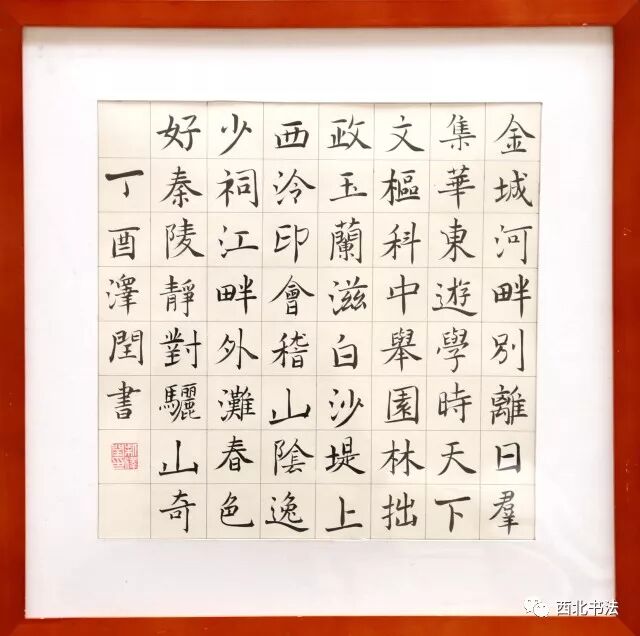 金城河畔別離日羣
集華東遊學時天下
文樞科中舉園林拙
政玉蘭滋白沙堤上
西泠印會稽山陰逸
少祠江畔外灘春色
好秦陵靜對驪山奇
丁酉澤閏書
西北书法